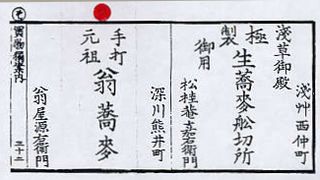 淺艸西仲町
淺草御殿
極製
生蕎麥舩切所
御用
松桂菴嘉右衛門
深川熊井町
手打
元祖
翁蕎麥
翁屋源右衛門
買物獨案内
三十二